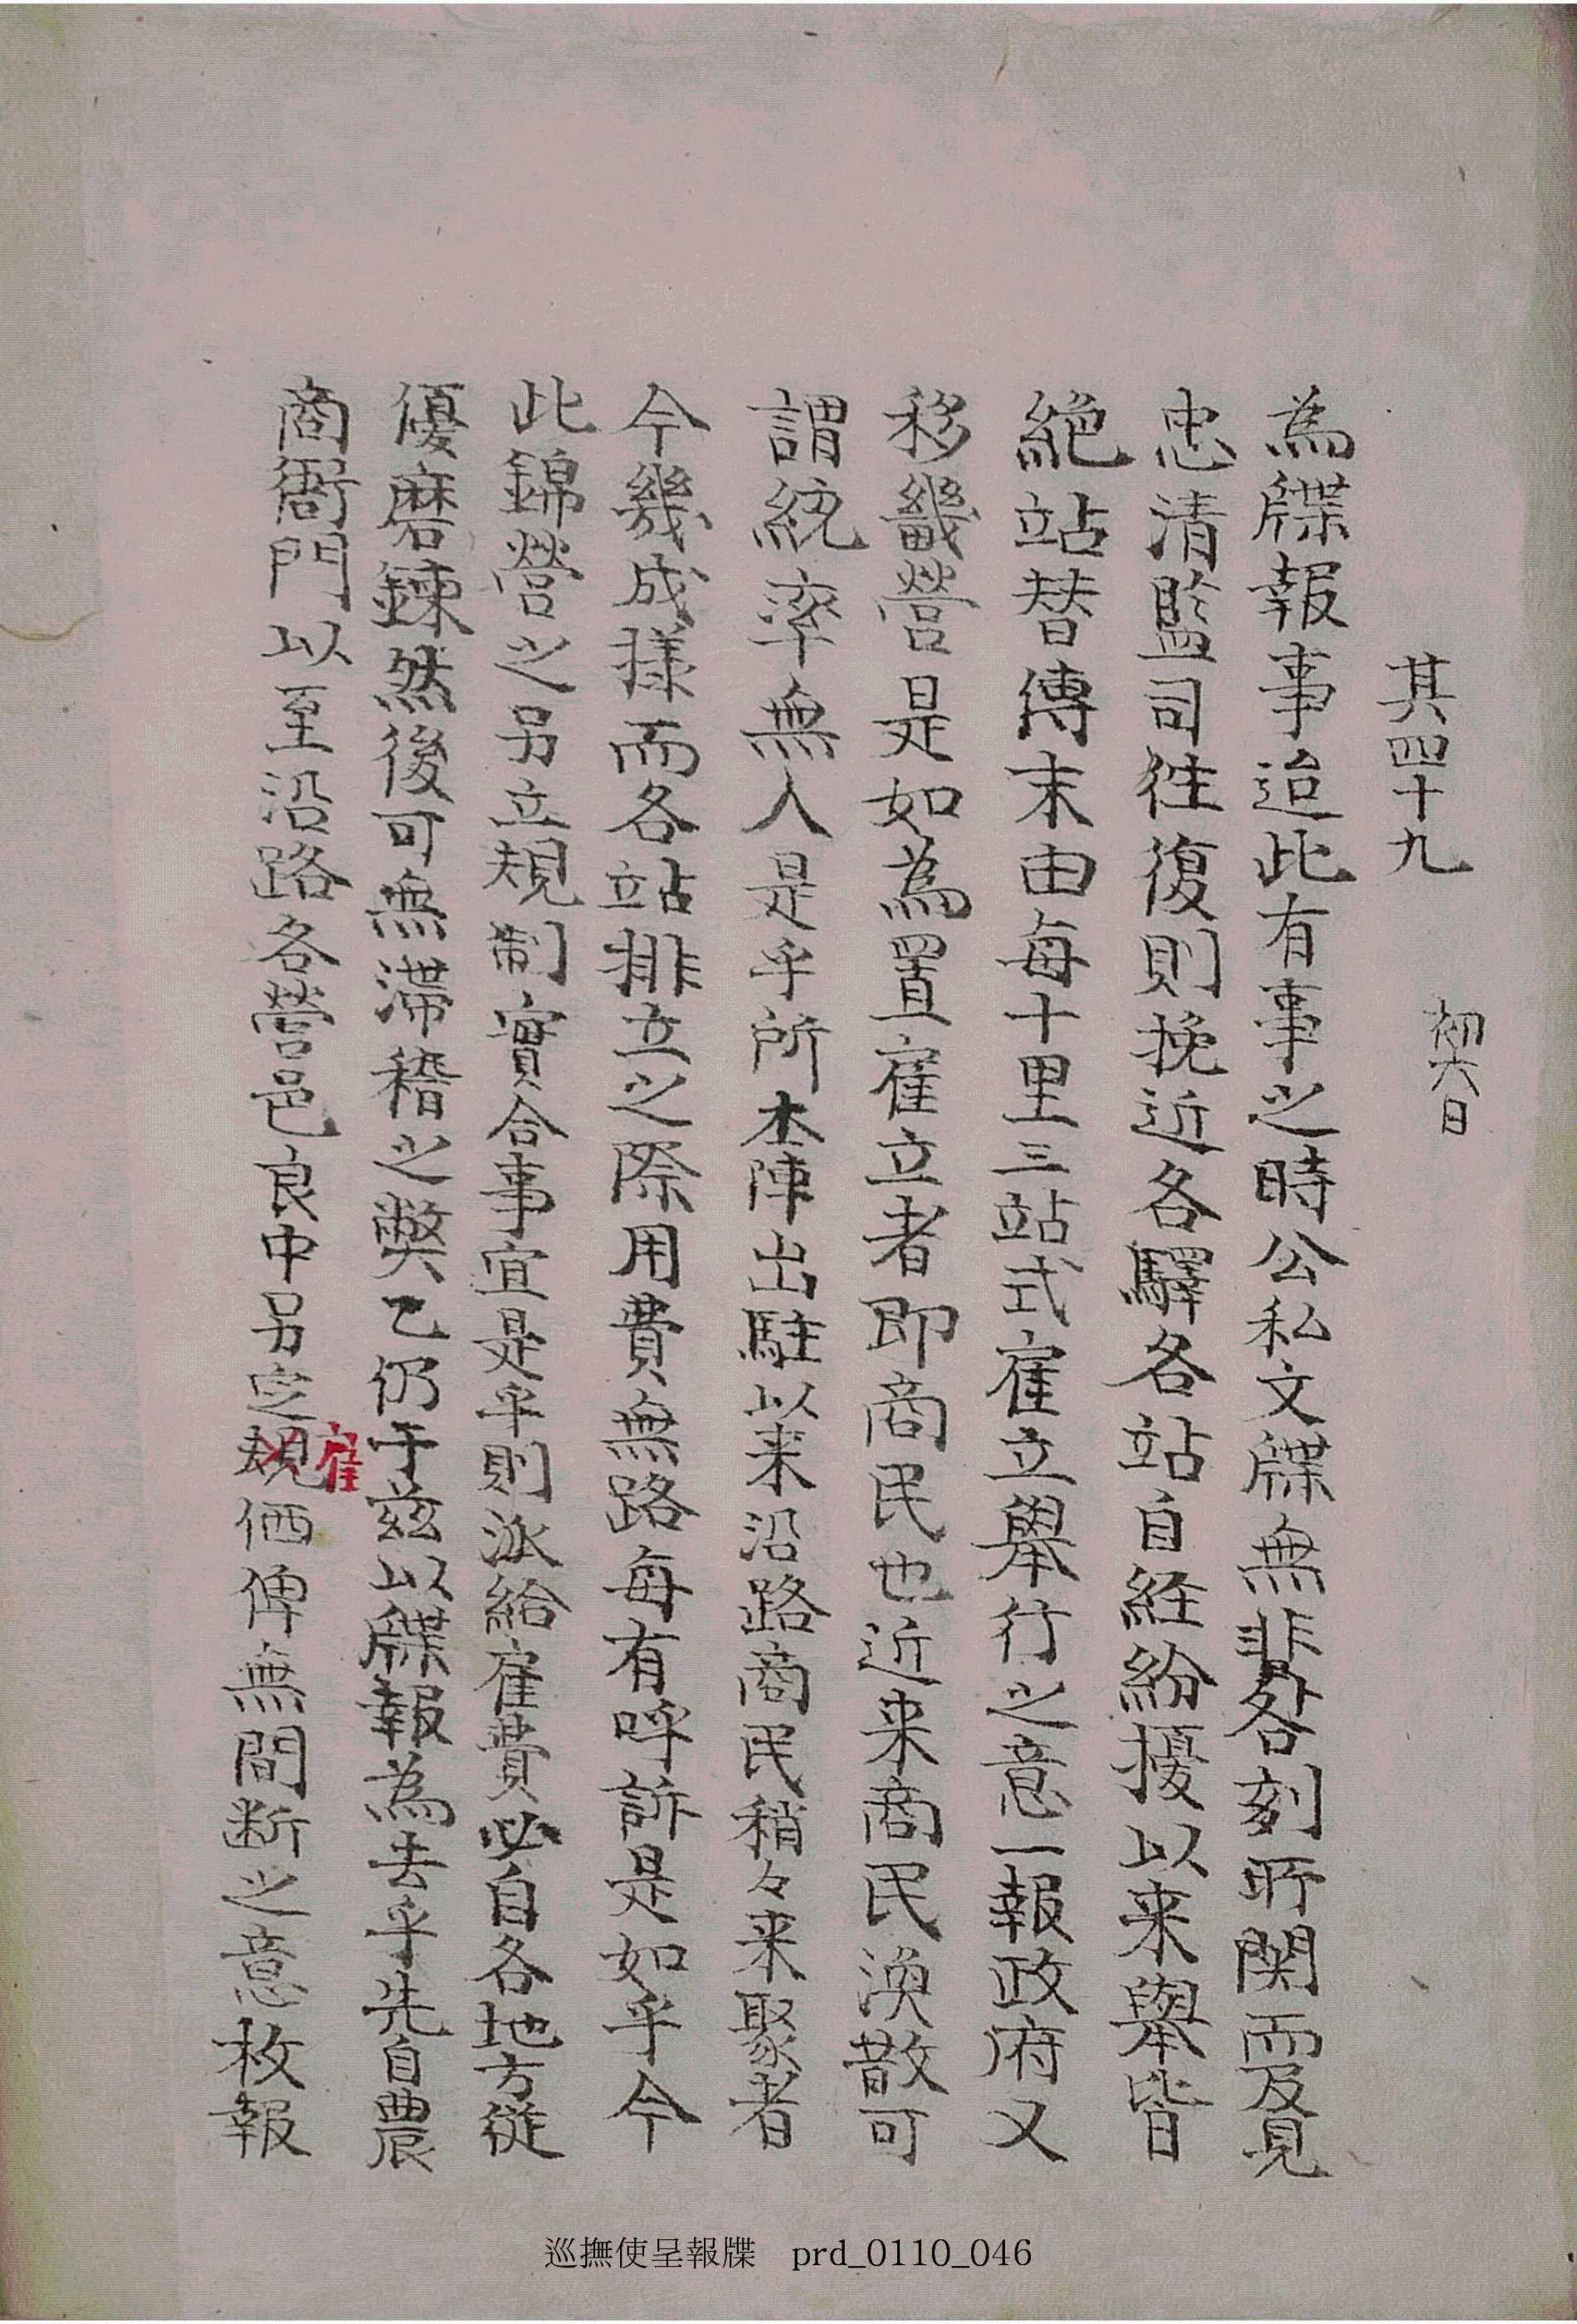 其四十九 初六日
為牒報事迨此有事之時公私文牒無非各別所関而覔
忠清監司徃復則挽近各驛各站自経紛擾以来擧皆
絶站替傳末由每十里三站式雇立擧行之意一報政府又
移畿營是如為置雇立者即商民也近来商民渙散可
謂統率無人是乎所本陣出駐以来沿路商民稍々来聚者
今幾成樣而各站排立之際用費無路每有呼訴是如乎今
此錦營之另立規制實合事宜是乎則派給雇費必自各地方從
優磨鍊然後可無滯稽之弊乙仍于玆以牒報為去乎先自農
商衙門以至沿路各營邑良中另定規雇価俾無間断之意枚報
巡撫使呈報牒 prd_0110_046